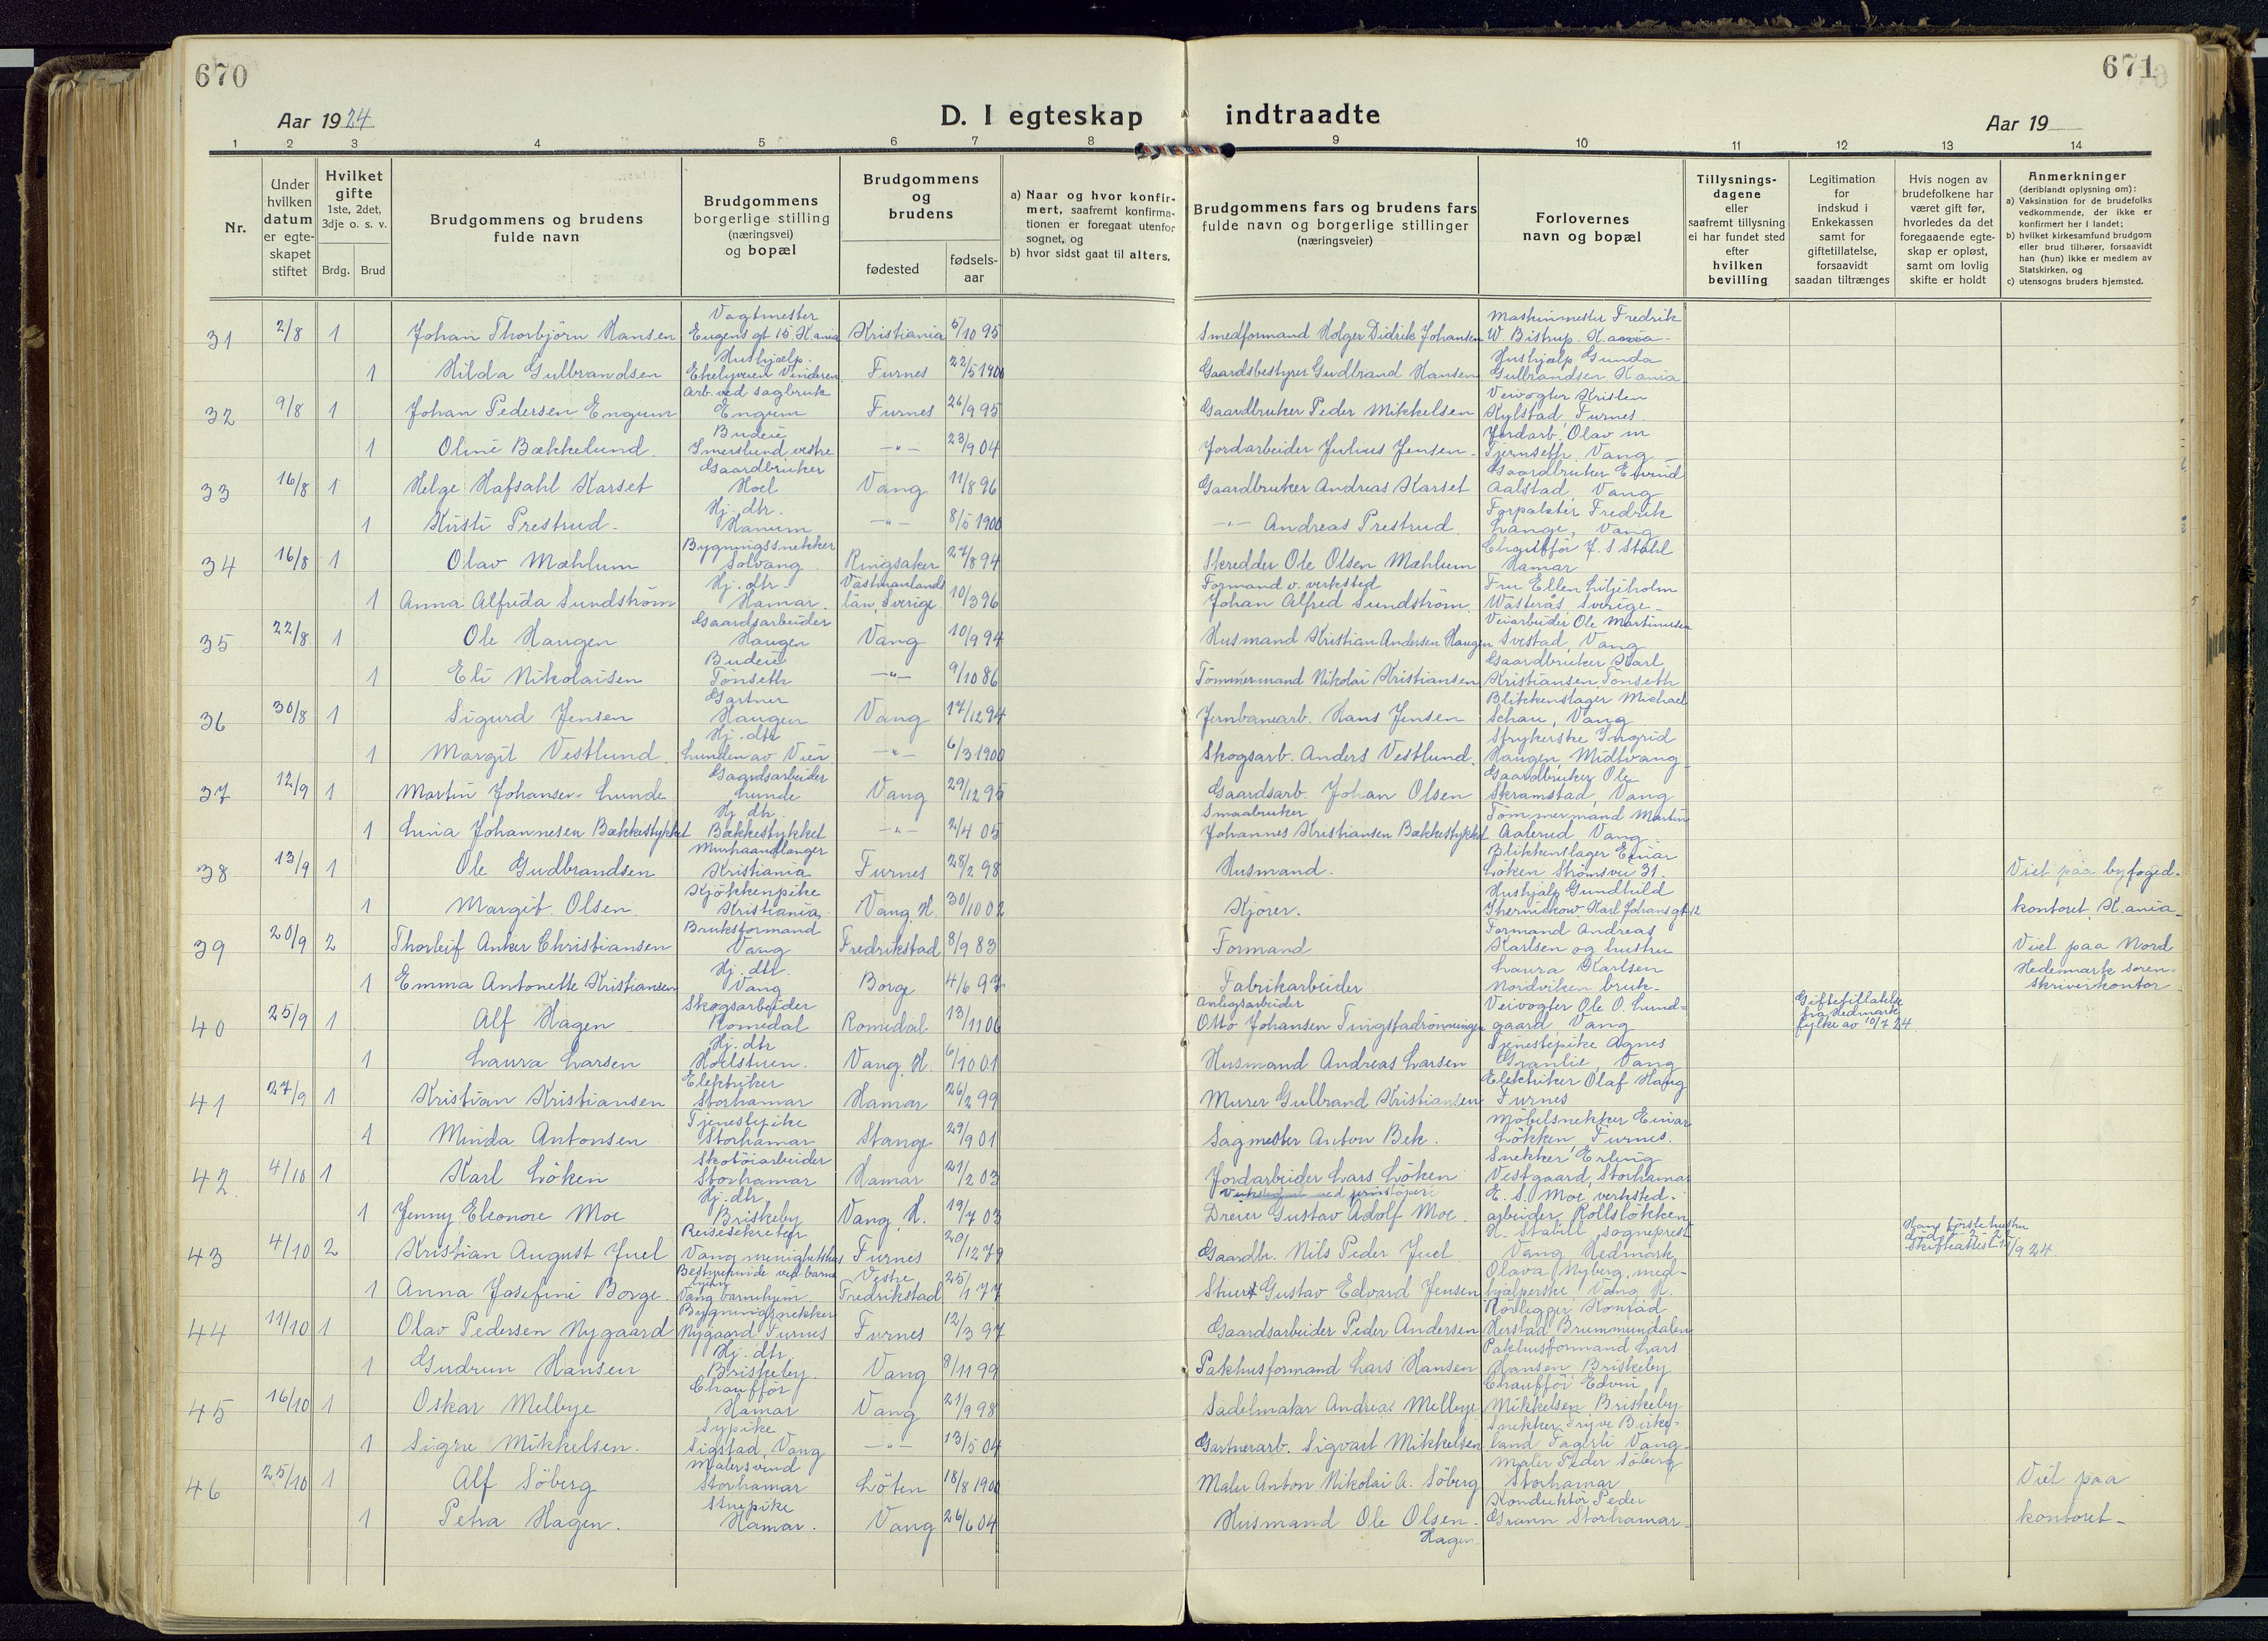 670
671
Aar 1924
D. I egteskap indtraadte
Aar 19
1 2 3 4 5 6 7 8 9 10 11 12 13 14
Nr.
Under hvilken datum er egteskapet stiftet
Hvilket gifte
1ste, 2det, 3dje o. s. v.
Brdg. Brud
Brudgommens og brudens fulde navn
Brudgommens borgerlige stilling (næringsvei) og bopæl
Brudgommens og brudens
fødested
fødselsaar
a) Naar og hvor konfirmert, saafremt konfirmationen er foregaat utenfor sognet, og
b) hvor sidst gaat til alters.
Brudgommens fars og brudens fars fulde navn og borgerlige stillinger (næringsveier)
Forlovernes navn og bopæl
Tillysningsdagene eller saafremt tillysning ei har fundet sted efter hvilken bevilling
Legitimation for indskud i Enkekassen samt for giftetillatelse, forsaavidt saadan tiltrænges
Hvis nogen av brudefolkene har været gift før, hvorledes da det foregaaende egteskap er opløst, samt om lovlig skifte er holdt
Anmerkninger
(deriblandt oplysning om):
a) Vaksination for de brudefolks vedkommende, der ikke er konfirmert her i landet;
b) hvilket kirkesamfund brudgom eller brud tilhører, forsaavidt han (hun) ikke er medlem av Statskirken, og
c) utensogns bruders hjemsted.
31 2/8 1 Johan Thorbjörn Hansen Vagtmester Eugens gt 15. K.ania Kristiania 5/10 95 Smedformand Holger Didrik Johansen Maskinmester Fredrik W. Bistrup. K.ania
1 Hilda Gulbrandsen Hushjælp. Ekelyveien Vinderen Furnes 22/5 1900 Gaardsbestyrer Gudbrand Hansen Hushjælp Gunda Gulbrandsen Kania
32 9/8 1 Johan Pedersen Engum Arb. ved sagbruk Engum Furnes 26/9 95 Gaardbruker Peder Mikkelsen Veivogter Kristen Kylstad, Furnes
1 Oline Bækkelund Budeie Imerslund vestre -"- 23/9 04 Jordarbeider Julius Jensen Jordarb. Olav Tjernseth, Vang
33 16/8 1 Helge Hafsahl Karset Gaardbruker Hoel Vang 11/8 96 Gaardbruker Andreas Karset Gaardbruker Aalstad, Vang
1 Kirsti Prestrud Hj. dtr. Hanum -"- 8/5 1900 -"- Andreas Prestrud Forpakter Fredrik Lange, Vang
34 16/8 1 Olav Mæhlum Bygningssnekker Solvang Ringsaker 27/8 94 Skredder Ole Olsen Mæhlum Chauffør J. S Stahl Hamar
1 Anna Alfrida Sundström Hj. dtr. Hamar Västmanlands län, Sverige 10/3 96 Formand v. verksted Johan Alfred Sundström Fru Ellen Liljeholm Wästerås, Sverige
35 22/8 1 Ole Haugen Gaardsarbeider Haugen Vang 10/9 94 Husmand Kristian Andersen Haugen Veiarbeider Ole Martinusen Svestad, Vang
1 Eli Nikolaisen Budeie Tönseth -"- 9/10 86 Tömmermand Nikolai Kristiansen Gaardbruker Karl Kristiansen Tönseth
36 30/8 1 Sigurd Jensen Gartner Haugen Vang 17/12 94 Jernbanearb. Hans Jensen Blikkenslager Michael Schau, Vang
1 Margit Vestlund Hj. dtr Lunden av Vien -"- 6/3 1900 Skogsarb. Anders Vestlund Strykerske Ingrid Haugen, Midtvang
37 12/9 1 Martin Johansen Lunde Gaardsarbeider Lunde Vang 29/12 95 Gaardsarb. Johan Olsen Gaardbruker Ole Skramstad, Vang
1 Lina Johannesen Bækkestykket Hj. dtr. Bækkestykket -"- 2/4 05 Smaabruker Johannes Kristiansen Bækkestykket Tömmermand Martin Aalerud Vang
38 13/9 1 Ole Gudbrandsen Murhaandlanger Kristiania Furnes 28/2 98 Husmand. Blikkenslager Einar Löken Strömsvei 31. Viet paa byfoged-
1 Margit Olsen. Kjökkenpike Kristiania Vang, H. 30/10 02 Kjører. Hushjælp Gundhild Karl Johans gt 12 kontoret, K.ania
39 20/9 2 Thorleif Anker Christiansen Bruksformand Vang Fredrikstad 8/9 83 Formand Formand Andreas Karlsen og hustru Viet paa Nord
1 Emma Antonette Kristiansen Hj. dtr. Vang Borge 4/6 97 Fabrikarbeider Laura Karlsen Nordviken bruk Hedemark sorenskriverkontor
40 25/9 1 Alf Hagen Skogsarbeider Romedal Romedal 13/11 06 Anlegsarbeider Otto Johansen Tingstadrönningen Veivogter Ole O. Lundgaard, Vang Giftetillatelse fra Hedmark fylke av 10/7 24
1 Laura Larsen Hj. dtr Hoelstuen. Vang, H. 6/10 01 Husmand Andreas Larsen Tjenestepike Agnes Granlie, Vang
41 27/9 1 Kristian Kristiansen Elektriker Storhamar Hamar 26/2 99 Murer Gulbrand Kristiansen Elektriker Olaf Haug Furnes
1 Minda Antonsen Tjenestepike Storhamar Stange 29/9 01 Sagmester Anton Bek. Möbelsnekker Einar Løkken Furnes.
42 4/10 1 Karl Löken Skotöiarbeider Storhamar Hamar 21/2 03 Jordarbeider Lars Löken Snekker Erling Vestgaard, Storhamar
1 Jenny Eleonore Moe Hj. dtr Briskeby Vang, H. 19/7 03 Dreier Gustav Adolf Moe. E. S. Moe, verksted-arbeider, Rollsløkken
43 4/10 2 Kristian August Juel Reisesekretær Vang menighetshus Furnes 20/12 79 Gaardbr. Nils Peder Juel H. Stabill, sogneprest Vang Hedmark Hans förste hustru död Skifteattest 15/9 24
1 Anna Josefine Borge Bestyrerinde ved barnehjem Vang barnehjem. Vestre Fredrikstad 25/1 77 Stuert Gustav Edvard Jensen Olava Nyberg, medhjælperske, Vang H.
44 11/10 1 Olav Pedersen Nygaard Bygningssnekker Nygaard Furnes Furnes 12/3 97 Gaardsarbeider Peder Andersen Rörlegger Konrad Herstad Brummundalen
1 Gudrun Hansen Hj. dtr. Briskeby. Vang 8/11 99 Pakhusformand Lars Hansen Pakhusformand Lars Hansen Briskeby
45 16/10 1 Oskar Melbye Chaufför Hamar Vang 21/9 98 Sadelmaker Andreas Melbye Chaufför Edvin Mikkelsen Briskeby
1 Signe Mikkelsen. Sypike Sigstad, Vang -"- 13/5 04 Gartnerarb. Sigvart Mikkelsen Snekker Trygve Birkeland Fagerli Vang
46 25/10 1 Alf Söberg Malersvend Storhamar Löten 18/8 1900 Maler Anton Nikolai A. Söberg Maler Peder Söberg Storhamar Viet paa
1 Petra Hagen. Stuepike Hamar. Vang 26/6 04 Husmand Ole Olsen Hagen Konduktör Peder Grunn Storhamar kontoret